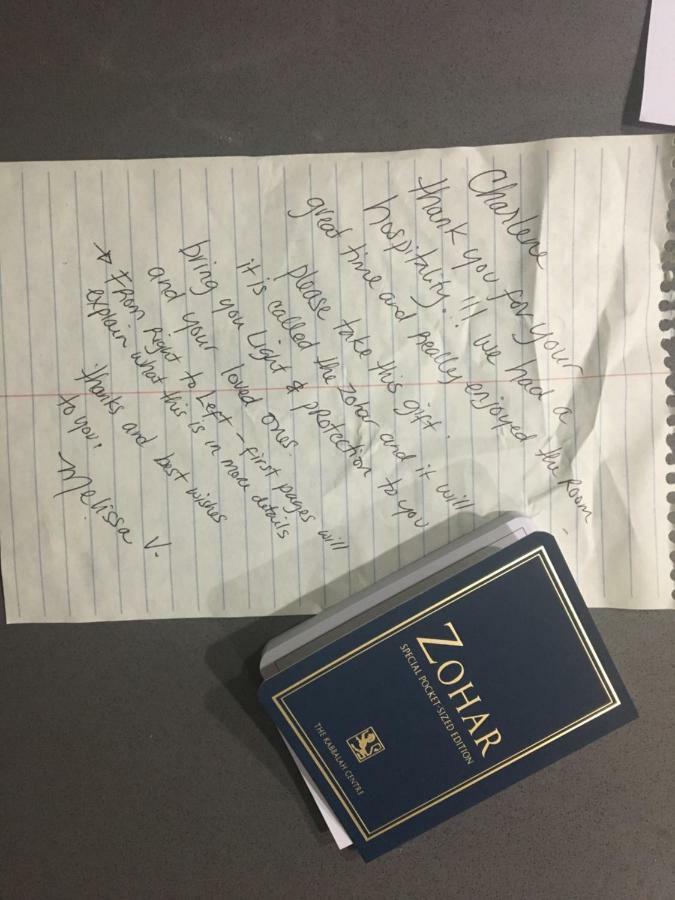 Charlene
thank you for your
hospitality!!! we had a
great time and really enjoyed the room -
please take this gift.
it is called the Zohar and it will
bring you Light & protection to you
and your loved ones.
→ From Right to Left - first pages will
explain what this is in more details
thanks and best wishes
to you,
Melissa V.
ZOHAR
SPECIAL POCKET-SIZED EDITION
THE KABBALAH CENTRE